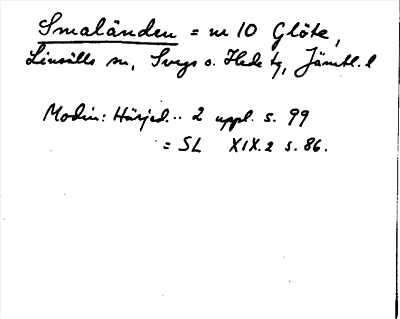 Smaländen = nr 10 Glöte,
Linsälls sn, Svegs o. Hede tg, Jämtl. l
Modin: Härjed... 2 uppl. s. 99
= SL XIX.2 s. 86.